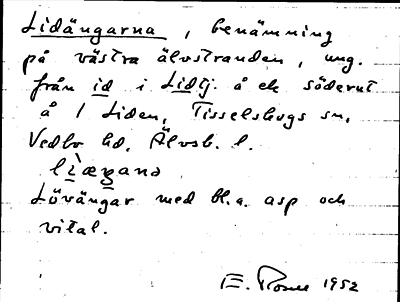 Lidängarna, benämning
på västra älvstranden, ung.
från id i Lidtj. å ek söderut
å 1 Liden, Tisselskogs sn,
Vedbo hd, Älvsb. l.
Lövängar med bl.a. asp och
vital.
E. 1952